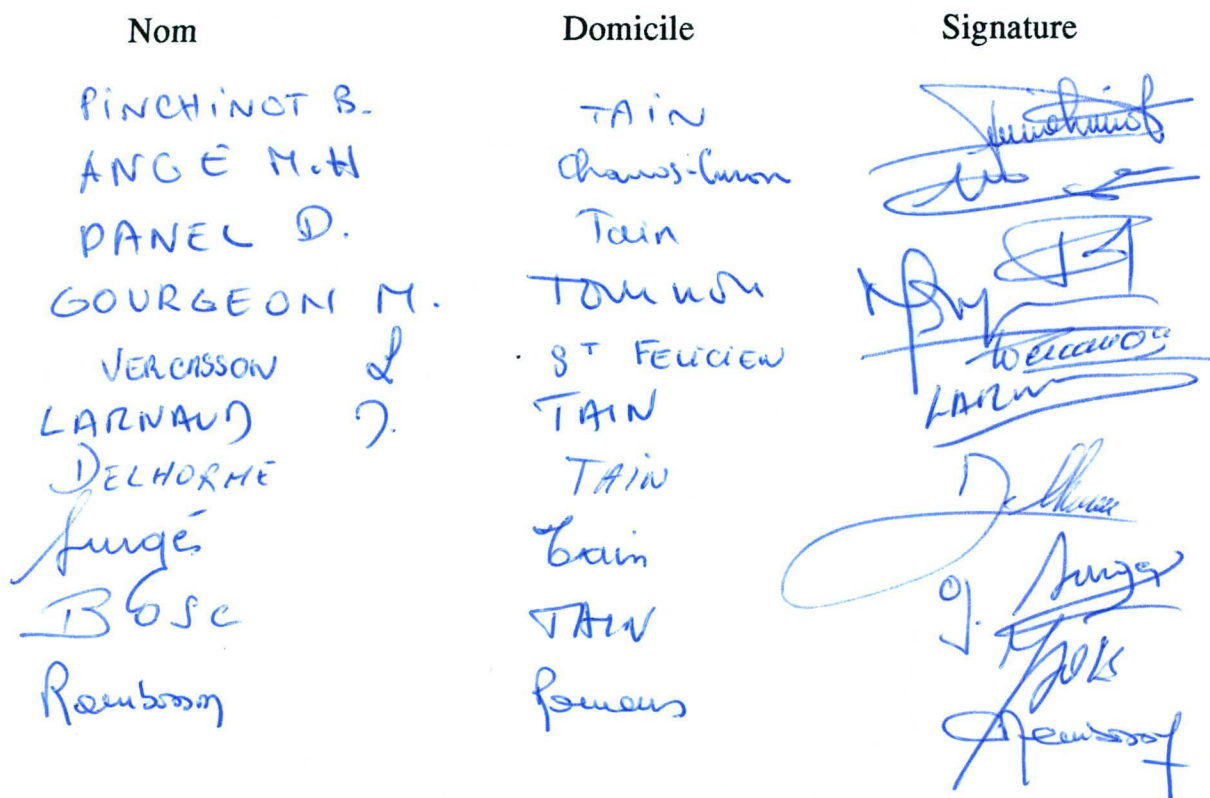 Nom Domicile Signature
PINCHINOT B. TAIN Pinchinot
ANGE M.H Chanos-Curson
PANEL D. Tain
GOURGEON M. TOURNON
VERCASSON L ST FELICIEN
LARNAUD J. TAIN LARN
DELHORME TAIN Delhorme
Surgés Tain
BOSC TAIN
Rambosson Romans Rambosson